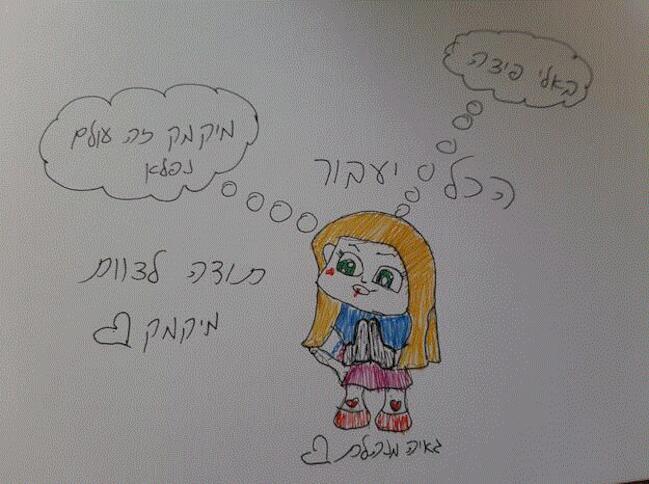 באלי פיצה
מיקמק זה עולם
נפלא
הכל יעבור
תודה לצוות
מיקמק
גאיה מנהלת